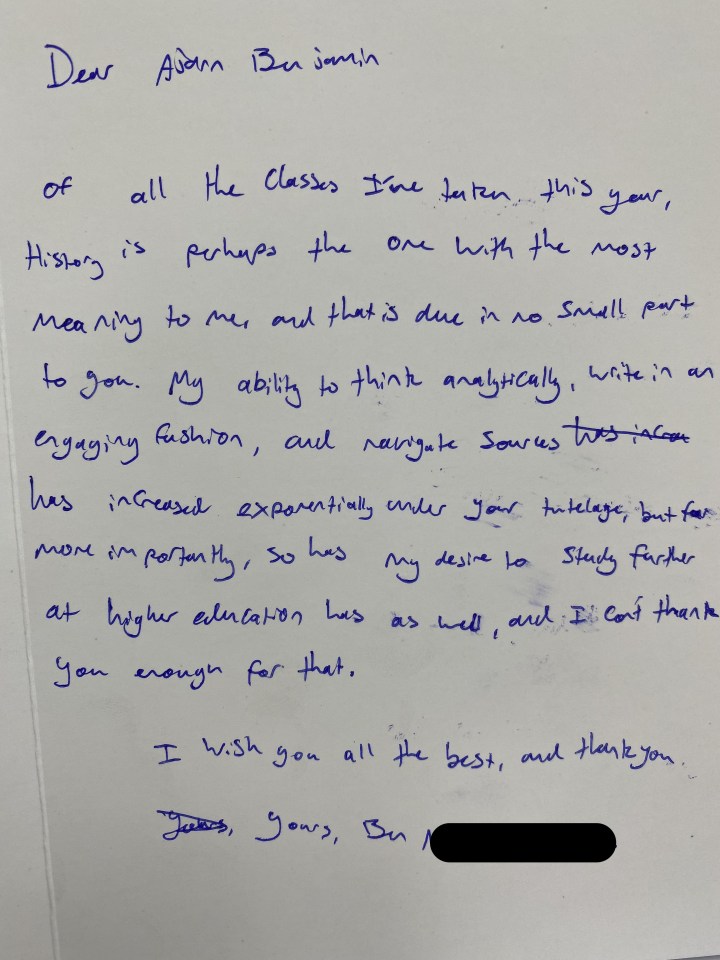 Dear Ajarn Benjamin
of all the classes I've taken this year,
History is perhaps the one with the most
meaning to me, and that is due in no small part
to you. My ability to think analytically, write in an
engaging fashion, and navigate sources has increa
has increased exponentially under your tutelage, but far
more importantly, so has my desire to study further
at higher education has as well, and I can't thank
you enough for that.
I wish you all the best, and thank you.
Yours, Ben